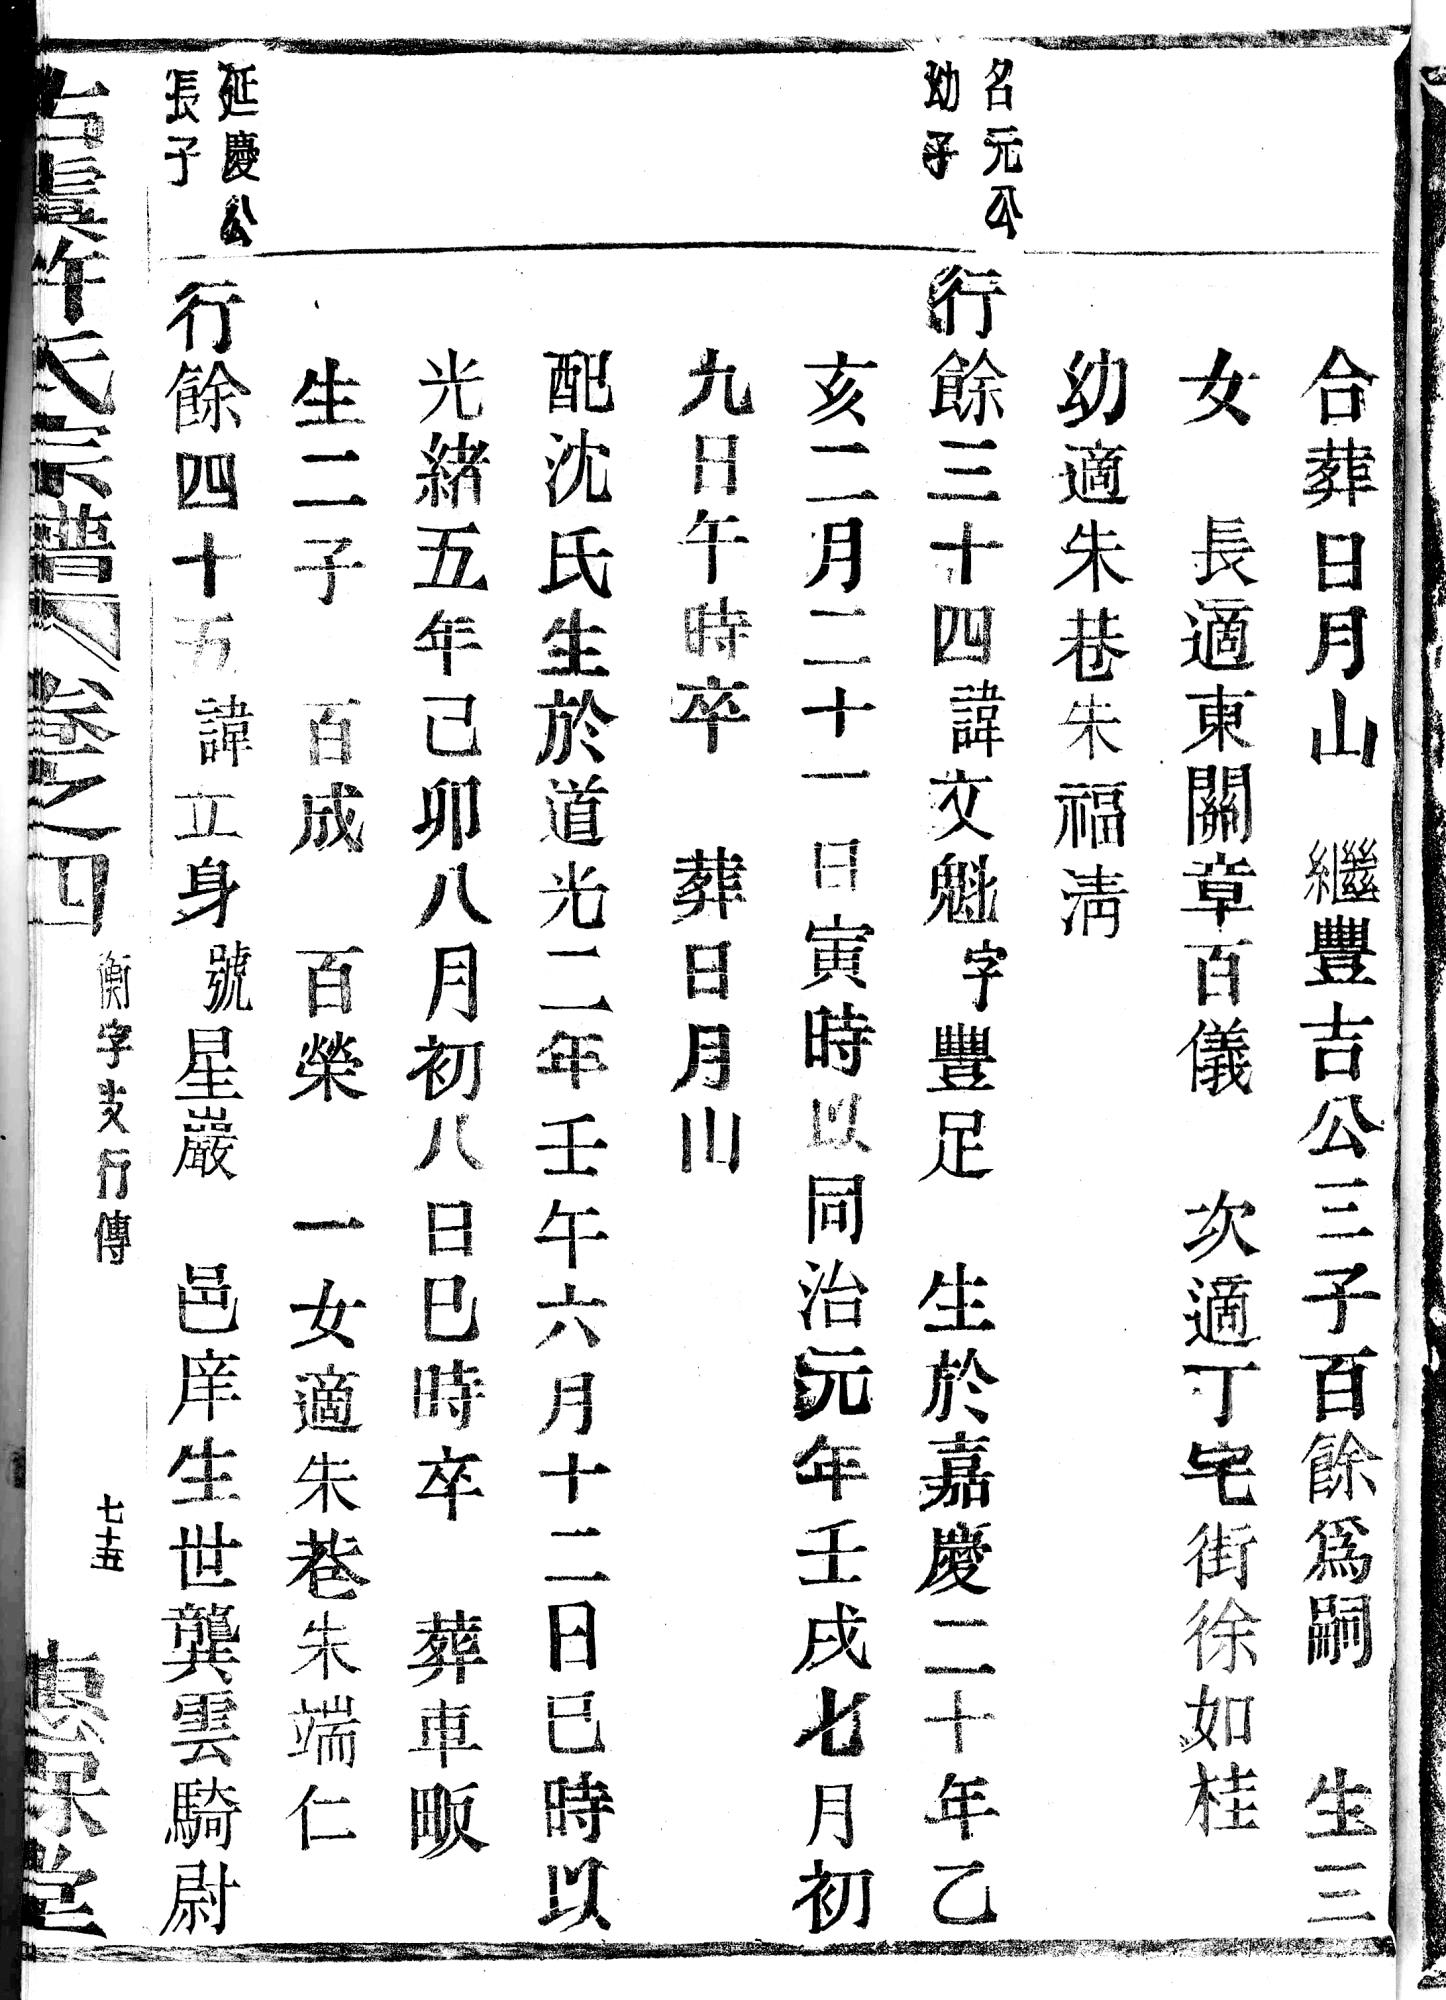 合葬日月山　繼豐吉公三子百餘爲嗣　生三
女　長適東關章百儀　次適丁宅街徐如桂
幼適朱巷朱福淸
名元公
幼子
行餘三十四諱文魁字豐足　生於嘉慶二十年乙
亥二月二十一日寅時以同治元年壬戌七月初
九日午時卒　葬日月山
配沈氏生於道光二年壬午六月十二日巳時以
光緒五年己卯八月初八日巳時卒　葬車畈
生二子　百成　百榮　一女適朱巷朱端仁
延慶公
長子
行餘四十五諱立身號星巖　邑庠生世龔雲騎尉
古虞許氏宗譜　卷之四
衡字支行傳
七十五
惠保堂